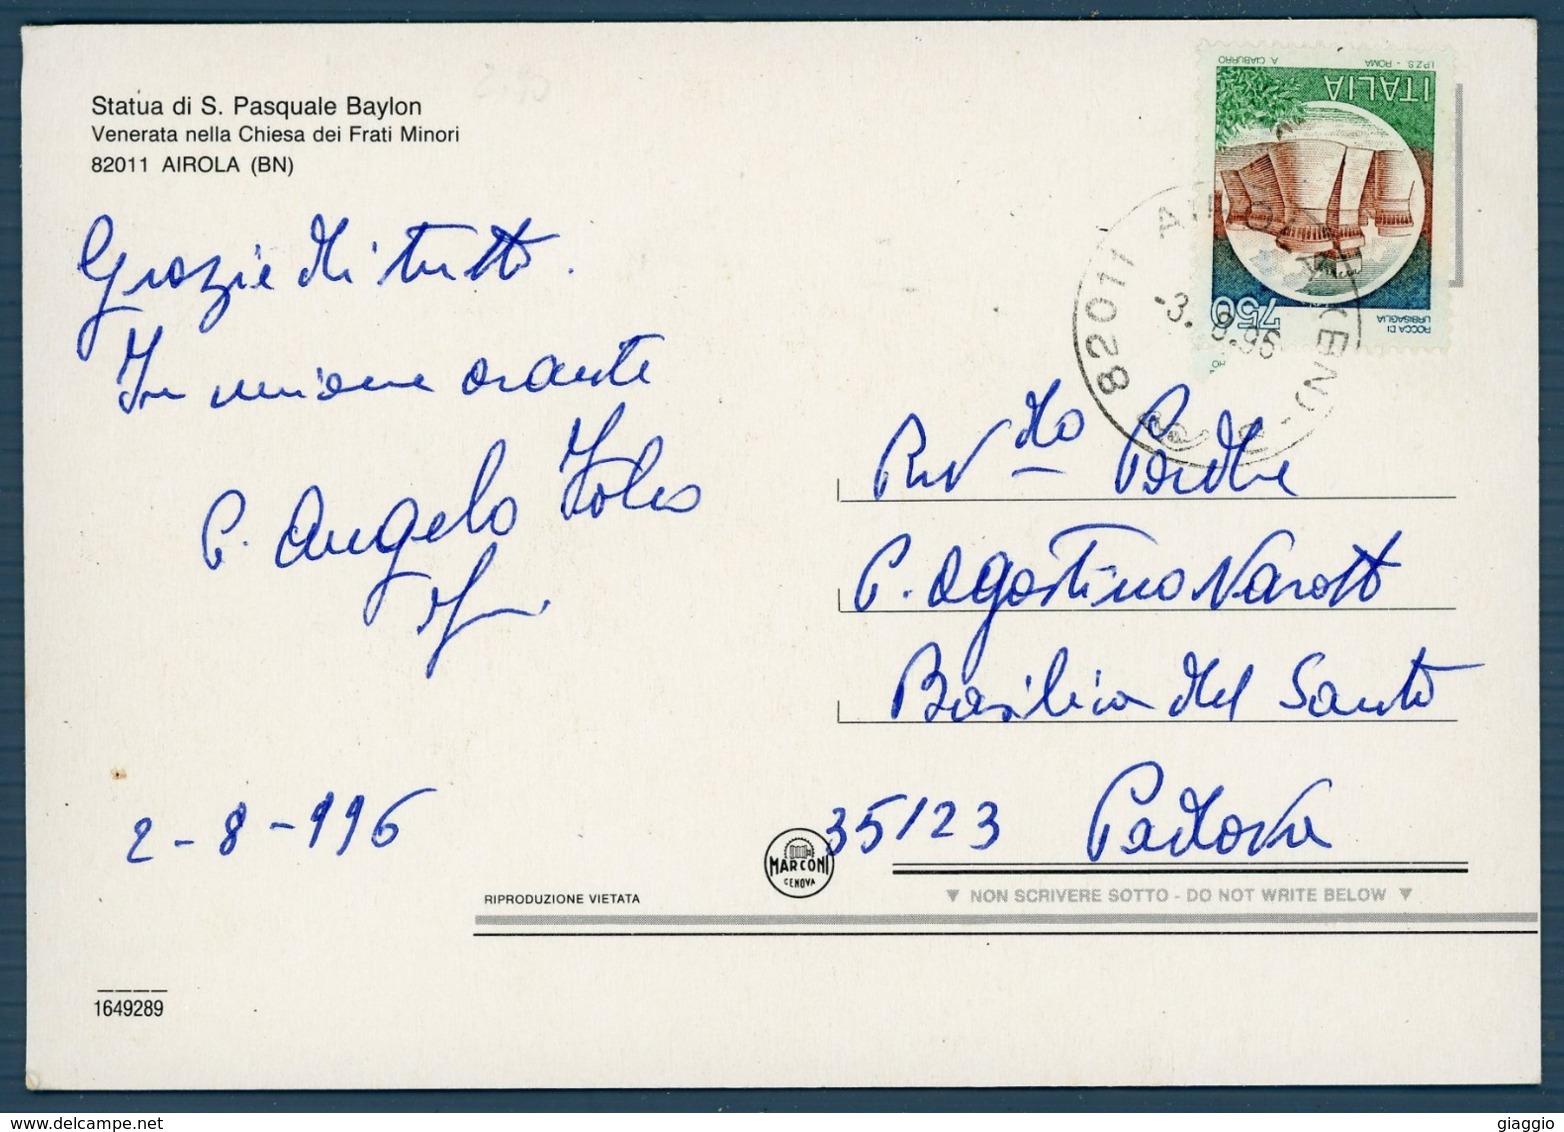 Statua di S. Pasquale Baylon
Venerata nella Chiesa dei Frati Minori
82011 AIROLA (BN)
2,90
Grazie di tutto.
In unione orante
P. Angelo
2-8-996
ITALIA
I.P.Z.S. - ROMA
A. CIABURRO
750
ROCCA DI
URBISAGLIA
82011 AIROLA (BN)
-3.8.96
Rev.do Padre
P. Agostino Varotto
Basilica del Santo
35123 Padova
MARCONI
GENOVA
RIPRODUZIONE VIETATA
▼ NON SCRIVERE SOTTO - DO NOT WRITE BELOW ▼
1649289
giaggio